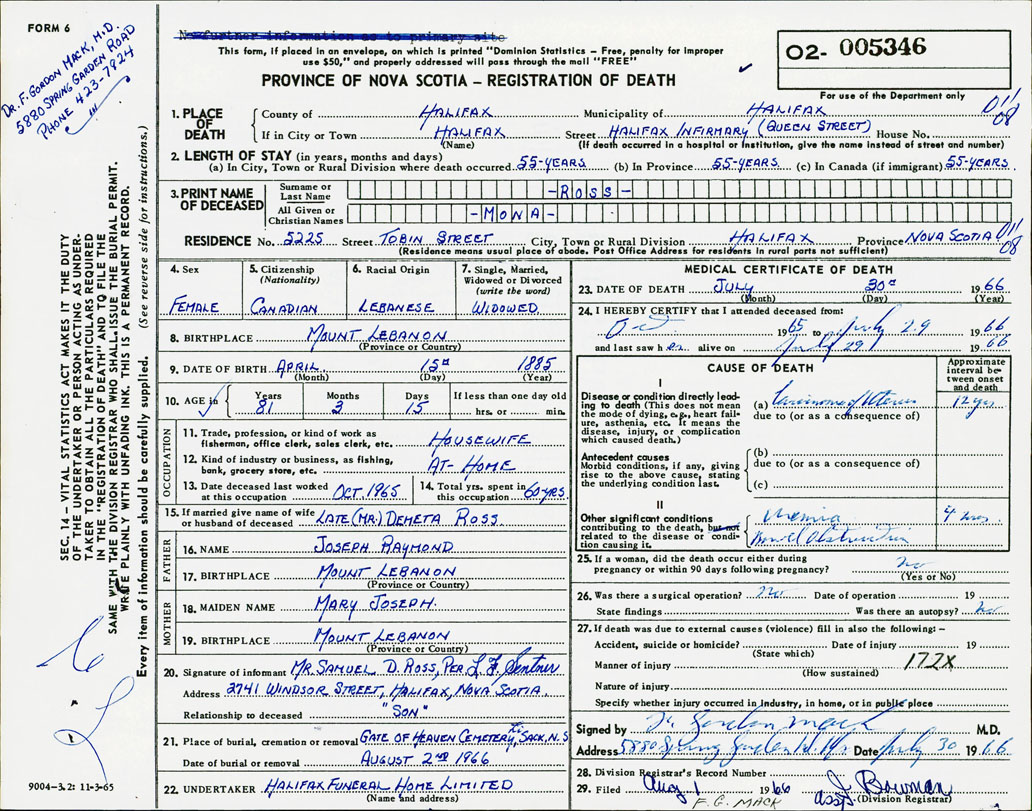 FORM 6
DR. F. GORDON MACK, M.D.
5880 SPRING GARDEN ROAD
PHONE 423-7924
No further information as to primary site
This form, if placed in an envelope, on which is printed "Dominion Statistics – Free, penalty for improper
use $50," and properly addressed will pass through the mail "FREE"
PROVINCE OF NOVA SCOTIA – REGISTRATION OF DEATH
02- 005346
For use of the Department only
1. PLACE OF DEATH
County of HALIFAX Municipality of HALIFAX 011/08
If in City or Town HALIFAX Street HALIFAX INFIRMARY (QUEEN STREET) House No.
(Name) (If death occurred in a hospital or Institution, give the name instead of street and number)
2. LENGTH OF STAY (in years, months and days)
(a) In City, Town or Rural Division where death occurred 55-YEARS. (b) In Province 55-YEARS. (c) In Canada (if immigrant) 55-YEARS.
3. PRINT NAME OF DECEASED
Surname or Last Name -ROSS-
All Given or Christian Names -MONA-
RESIDENCE No. 5225 Street TOBIN STREET City, Town or Rural Division HALIFAX Province NOVA SCOTIA 011/08
(Residence means usual place of abode. Post Office Address for residents in rural parts not sufficient)
SEC. 14 – VITAL STATISTICS ACT MAKES IT THE DUTY
OF THE UNDERTAKER OR PERSON ACTING AS UNDER-
TAKER TO OBTAIN ALL THE PARTICULARS REQUIRED
IN THE "REGISTRATION OF DEATH" AND TO FILE THE
SAME WITH THE DIVISION REGISTRAR WHO SHALL ISSUE THE BURIAL PERMIT.
WRITE PLAINLY WITH UNFADING INK. THIS IS A PERMANENT RECORD.
Every item of information should be carefully supplied. (See reverse side for instructions.)
4. Sex
FEMALE
5. Citizenship (Nationality)
CANADIAN
6. Racial Origin
LEBANESE
7. Single, Married, Widowed or Divorced (write the word)
WIDOWED
8. BIRTHPLACE MOUNT LEBANON
(Province or Country)
9. DATE OF BIRTH APRIL 15th 1885
(Month) (Day) (Year)
10. AGE in Years Months Days If less than one day old
81 3 15 hrs. or min.
OCCUPATION
11. Trade, profession, or kind of work as
fisherman, office clerk, sales clerk, etc. HOUSEWIFE
12. Kind of industry or business, as fishing,
bank, grocery store, etc. AT-HOME
13. Date deceased last worked
at this occupation OCT. 1965
14. Total yrs. spent in
this occupation 60-YRS.
15. If married give name of wife
or husband of deceased LATE (MR.) DEMETA ROSS.
FATHER
16. NAME JOSEPH RAYMOND
17. BIRTHPLACE MOUNT LEBANON
(Province or Country)
MOTHER
18. MAIDEN NAME MARY JOSEPH.
19. BIRTHPLACE MOUNT LEBANON
(Province or Country)
20. Signature of informant MR. SAMUEL D. ROSS, PER. L. F. Sentner
Address 2741 WINDSOR STREET, HALIFAX, NOVA SCOTIA.
Relationship to deceased "SON"
21. Place of burial, cremation or removal GATE OF HEAVEN CEMETERY, SACK, N.S
Date of burial or removal AUGUST 2nd 1966
22. UNDERTAKER HALIFAX FUNERAL HOME LIMITED
(Name and address)
9004-3.2: 11-3-65
MEDICAL CERTIFICATE OF DEATH
23. DATE OF DEATH JULY 30th 1966
(Month) (Day) (Year)
24. I HEREBY CERTIFY that I attended deceased from:
Oct 1965 to July 29 1966
and last saw her alive on July 29 1966
CAUSE OF DEATH
Approximate interval between onset and death
I
Disease or condition directly lead-
ing to death (This does not mean
the mode of dying, e.g., heart fail-
ure, asthenia, etc. It means the
disease, injury, or complication
which caused death.)
(a) Carcinoma of Uterus 12 yrs
due to (or as a consequence of)
Antecedent causes
Morbid conditions, if any, giving
rise to the above cause, stating
the underlying condition last.
(b)
due to (or as a consequence of)
(c)
II
Other significant conditions
contributing to the death, but not
related to the disease or condi-
tion causing it.
Uremia
Bowel Obstruction
25. If a woman, did the death occur either during
pregnancy or within 90 days following pregnancy? no
(Yes or No)
26. Was there a surgical operation? no Date of operation 19
State findings Was there an autopsy? no
27. If death was due to external causes (violence) fill in also the following: –
Accident, suicide or homicide? Date of injury 19
(State which)
Manner of injury 172X
(How sustained)
Nature of injury
Specify whether injury occurred in industry, in home, or in public place
Signed by F. Gordon Mack M.D.
Address 5880 Spring Garden Rd. Hfx Date July 30 1966
28. Division Registrar's Record Number
29. Filed Aug 1 1966 J. Bowman
F. G. MACK Asst. (Division Registrar)